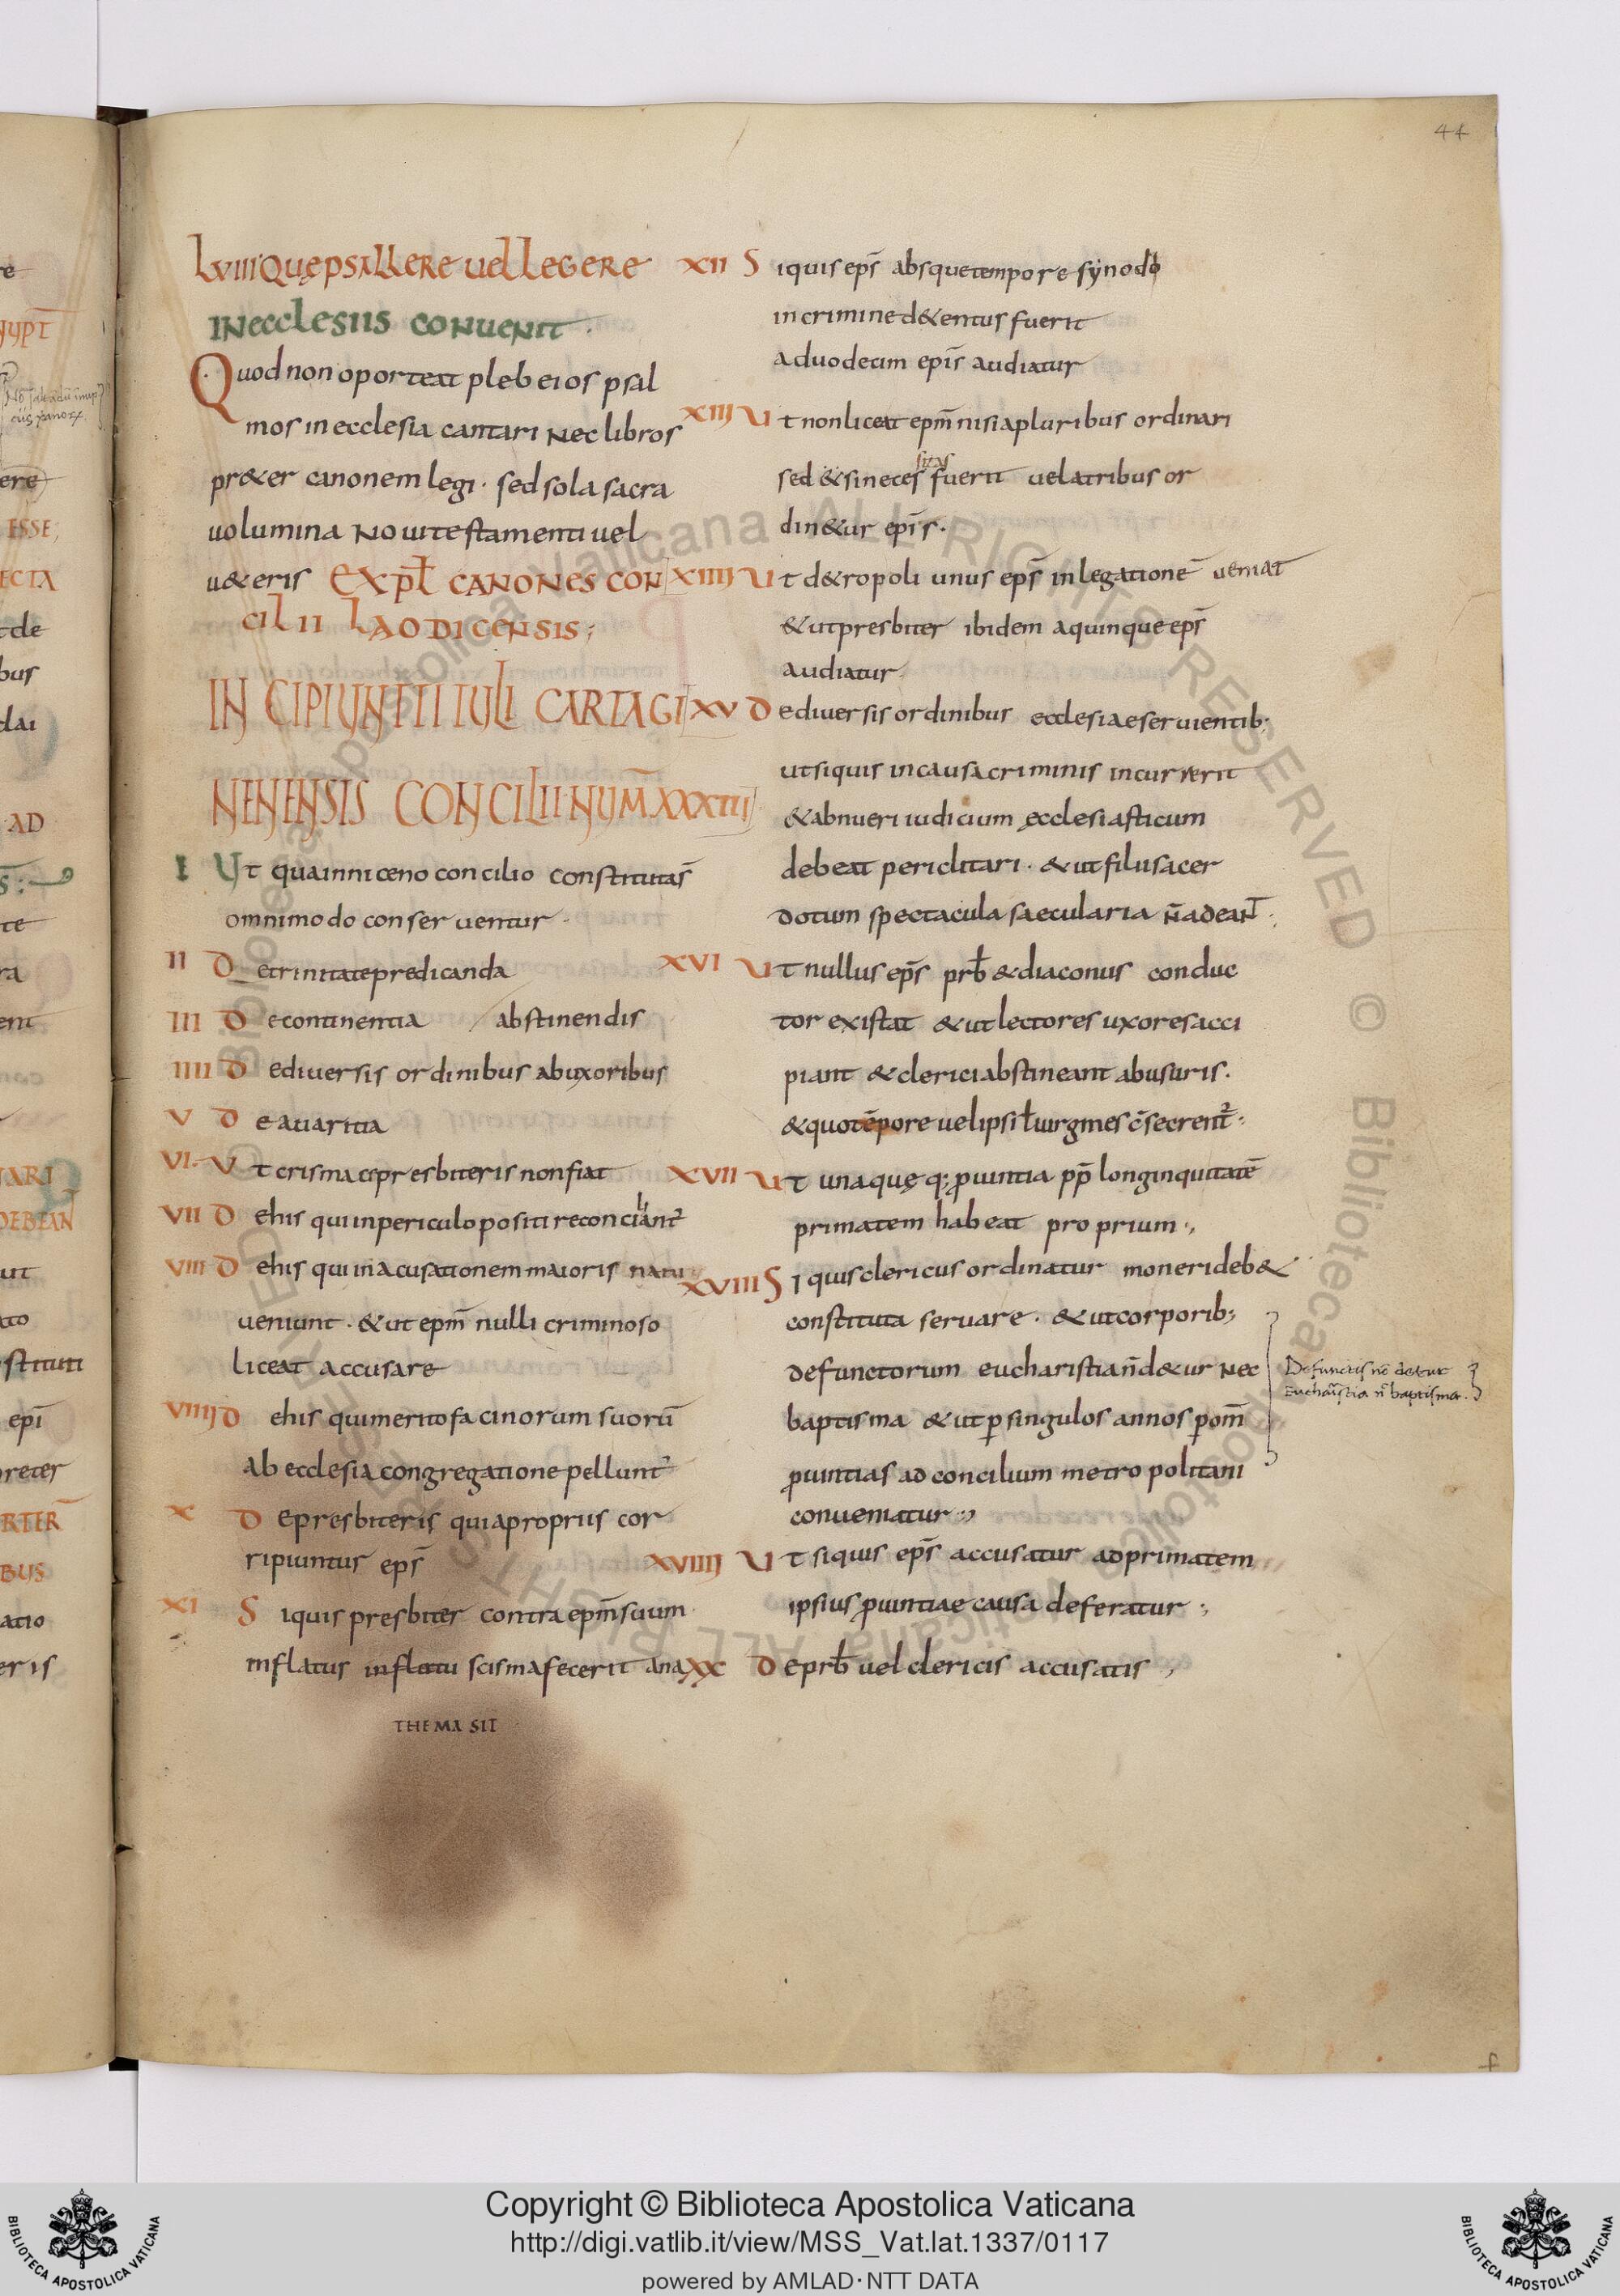 44
LVIIII QUĘ PSALLERE UEL LEGERE
IN ECCLESIIS CONUENIT.
Quod non oporteat plebeios psal
mos in ecclesia cantari nec libros
pr&er canonem legi. sed sola sacra
uolumina noui testamenti uel
u&eris EXPL̄ CANONES CON
CILII LAODICENSIS;
INCIPIUNT TITULI CARTAGI
NENENSIS CONCILII NUM̄ XXXIII
I Ut qua in niceno concilio constitutas̄
omnimodo conseruentur.
II De trinitate predicanda
III De continentia abstinendis
IIII De diuersis ordinibus ab uxoribus
V De auaritia
VI. Ut crisma a presbiteris non fiat
VII De his qui in periculo positi reconciliant᷑
VIII De his qui in acusationem maioris natu
ueniunt. & ut epm̄ nulli criminoso
liceat accusare
VIIII De his qui merito facinorum suorū
ab ecclesia congregatione pellunt᷑
X De presbiteris qui a propriis cor
ripiuntus eps̄
XI Si quis presbiter contra epm̄ suum
inflatus inflatu scisma fecerit ana
THEMA SIT
XII Si quis eps̄ absque tempore synodo
in crimine d&entus fuerit
a duodecim epis̄ audiatur
XIII Ut non liceat epm̄ nisi a pluribus ordinari
sitas
sed & si neces fuerit uel a tribus or
din&ur epis̄.
XIIII Ut d&ropoli unus eps̄ in legationē ueniat
& ut presbiter ibidem a quinque eps̄
audiatur
XV De diuersis ordinibus ecclesiae seruientib;
ut si quis in causa criminis incurrerit
& abnueri iudicium ęcclesiasticum
debeat periclitari. & ut filii sacer
dotum spectacula saecularia n̄ adeant̄.
XVI Ut nullus eps̄ prb̄ & diaconus conduc
tor existat & ut lectores uxores acci
piant & clerici abstineant ab usuris.
& quo tēpore uel ipsi ł uirgines c̄secrent᷑:
XVII Ut una quęq; ꝓuintia pp̄ longinquitatē
primatem habeat proprium.,
XVIII Si quis clericus ordinatur moneri deb&
constituta seruare. & ut corporib;
defunctorum eucharistia n̄ d&ur nec
baptisma & ut ꝑ singulos annos ꝑ om̄
ꝓuintias ad concilium metropolitani
conueniatur
XVIIII Ut si quis eps̄ accusatur ad primatem
ipsius ꝓuintiae causa deferatur;
XX De prb̄ uel clericis accusatis,
Defunctis nē detur
Eucharistia n̄ baptisma.
f
Copyright © Biblioteca Apostolica Vaticana
http://digi.vatlib.it/view/MSS_Vat.lat.1337/0117
powered by AMLAD·NTT DATA
BIBLIOTECA APOSTOLICA VATICANA
BIBLIOTECA APOSTOLICA VATICANA
© Biblioteca Apostolica Vaticana ALL RIGHTS RESERVED © Biblioteca Apostolica Vaticana ALL RIGHTS RESERVED